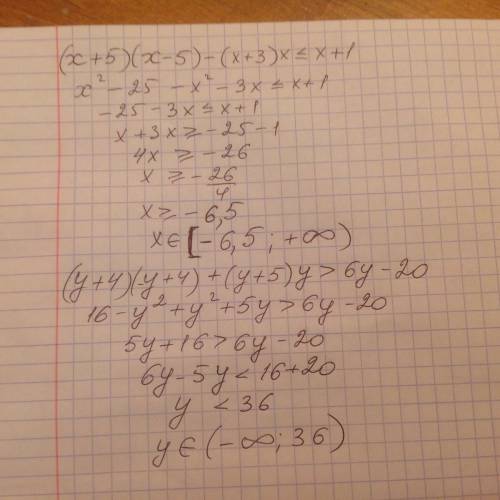 (x+5)(x-5)-(x+3)x≤x+1
x²-25-x²-3x≤x+1
-25-3x≤x+1
x+3x≥-25-1
4x≥-26
x≥-26/4
x≥-6,5
x∈[-6,5;+∞)
(y+4)(y+4)+(y+5)y>6y-20
16-y²+y²+5y>6y-20
5y+16>6y-20
6y-5y<16+20
y<36
y∈(-∞;36)